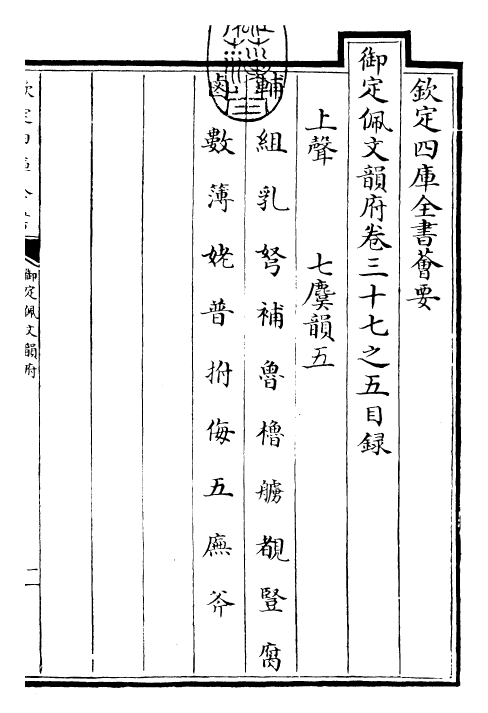 欽定四庫全書薈要
御定佩文韻府卷三十七之五目録
上聲　七麌韻五
輔組乳弩補魯櫓艣覩豎腐
鹵數簿姥普拊侮五廡斧
御定佩文韻府